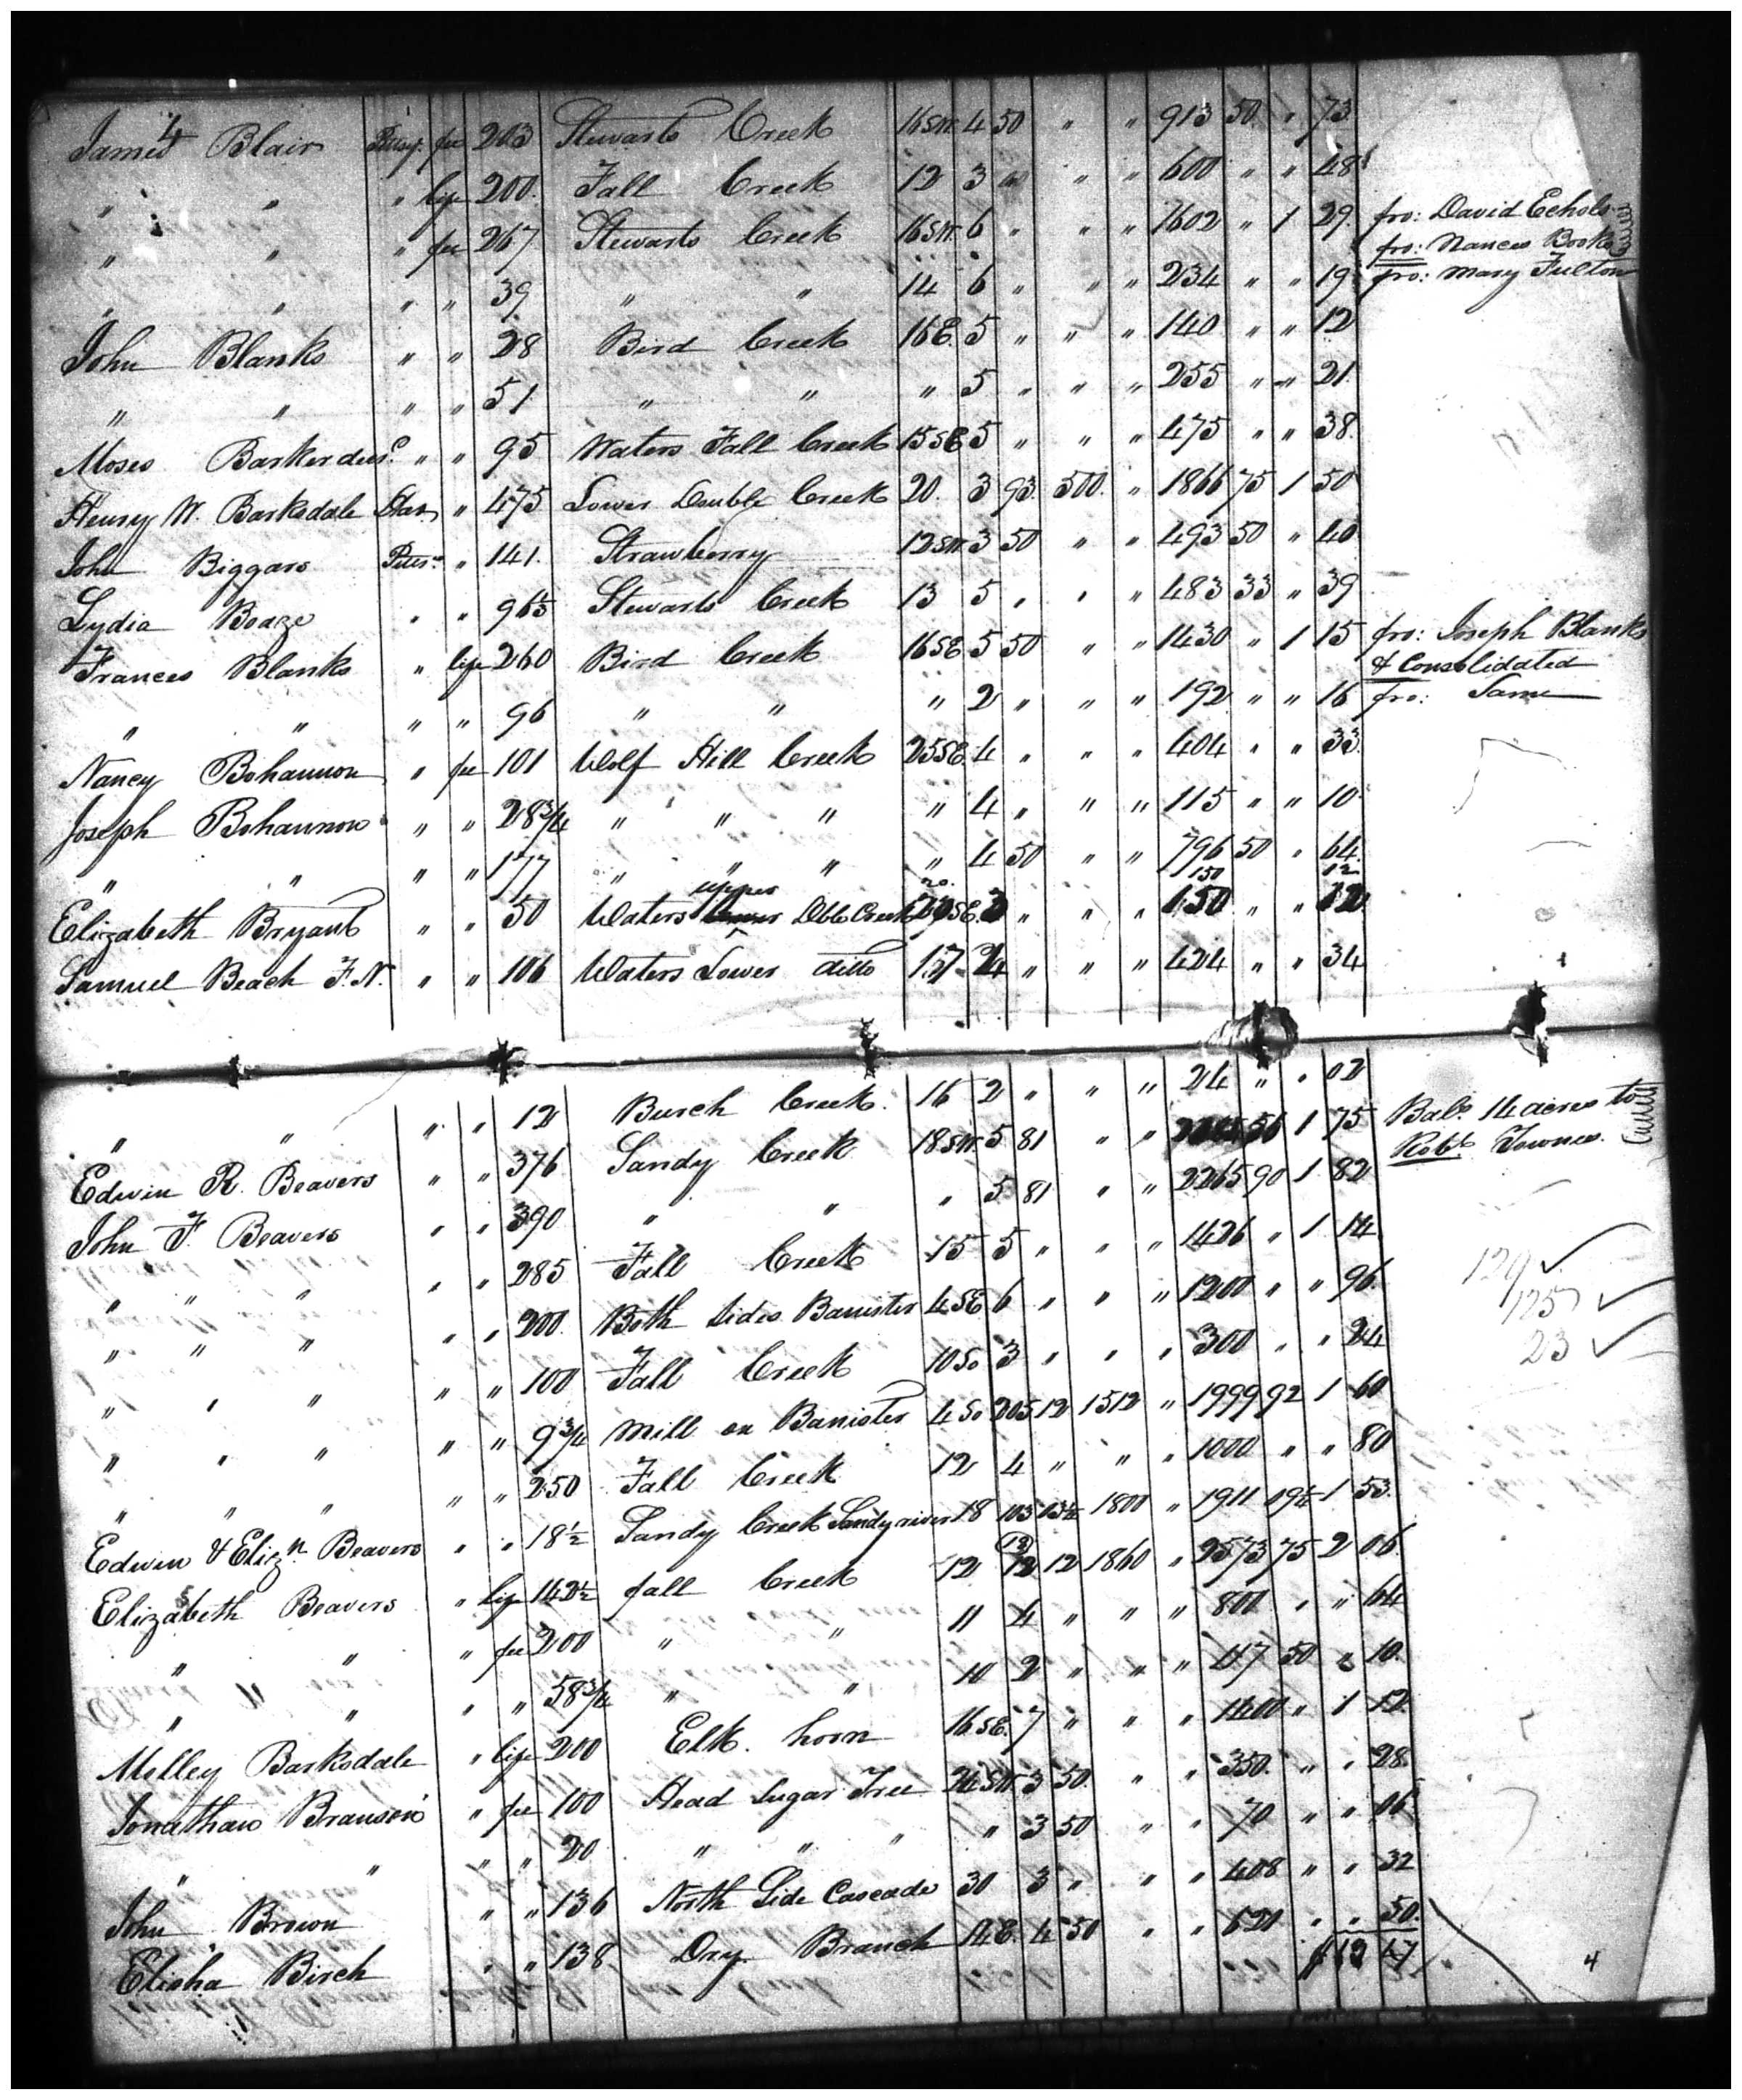 4
James Blair Pitsy. fee 203 Stewarts Creek 16 SW. 4 50 " " 913 50 " 73
" " " life 200. Fall Creek 12 3 00 " " 600 " " 48
" " " fee 267 Stewarts Creek 16 SW. 6 " " " 1602 " 1 29 fro: David Echols
fro: Nances Books
" " " " 39 " " 14 6 " " " 234 " " 19 fro: Mary Fulton
John Blanks " " 28 Bird Creek 16 E. 5 " " " 140 " " 12
" " " " 51 " " " 5 " " " 255 " " 21
Moses Barker " " 95 Waters Fall Creek 15 SE 5 " " " 475 " " 38
Henry W. Barksdale " 475 Lower Double Creek 20. 3 93 500. " 1866 75 1 50
John Biggars Pitts. " 141. Strawberry 12 SW. 3 50 " " 493 50 " 40
Lydia Boaze " " 96 Stewarts Creek 13 5 " " " 483 33 " 39
Frances Blanks " life 260 Bird Creek 16 SE 5 50 " " 1430 " 1 15 fro: Joseph Blanks
& Consolidated
" " " " 96 " " " 2 " " " 192 " " 16 fro: Same
Nancy Bohannon " fee 101 Wolf Hill Creek 25 SE. 4 " " " 404 " " 33
Joseph Bohannon " " 28 3/4 " " " " 4 " " " 115 " " 10
" " " " 177 " " " " 4 50 " " 796 50 " 64
upper no. 150 12
Elizabeth Bryant " " 50 Waters Lower Dble Creek SE. 3 " " " 150 " " 12
Samuel Beach F. N. " " 106 Waters Lower ditto 17 4 " " " 424 " " 34
" " " " 12 Burch Creek. 16 2 " " " 24 " " 02
Edwin R. Beavers " " 376 Sandy Creek 18 SW. 5 81 " " 56 1 75 Bal. 14 acres to
Robt. Townes.
John F. Beavers " " 390 " " " 5 81 " " 2265 90 1 82
" " " " " 285 Fall Creek 15 5 " " " 1426 " 1 14
" " " " " 200 Both Sides Banister 4 SE 6 " " " 1200 " " 96
" " " " " 100 Fall Creek 10 So 3 " " " 300 " " 24
" " " " " 9 3/4 Mill on Banister 4 So 205 12 1512 " 1999 92 1 60
" " " " " 250 Fall Creek 12 4 " " " 1000 " " 80
Edwin & Elizn. Beavers " " 18 1/2 Sandy Creek Sandy river 18 103 1800 " 1911 1 53
Elizabeth Beavers " life 142 1/2 fall Creek 12 12 12 1860 " 2573 75 2 06
" " " fee 200 " " 11 4 " " " 800 " " 64
" " " " 58 3/4 " " 10 2 " " " 117 50 " 10
Molley Barksdale " life 200 Elk horn 16 SE. 7 " " " 1400 " 1 12
Jonathan Branson " fee 100 Head Sugar Tree 24 SW. 3 50 " " 350. " " 28
" " " " 20 " " " " 3 50 " " 70 " " 06
John Brown " " 136 North Side Cascade 30 3 " " " 408 " " 32
Elisha Birch " " 138 Dry Branch 14 E. 4 50 " " 621 " " 50.
129
125
23
4